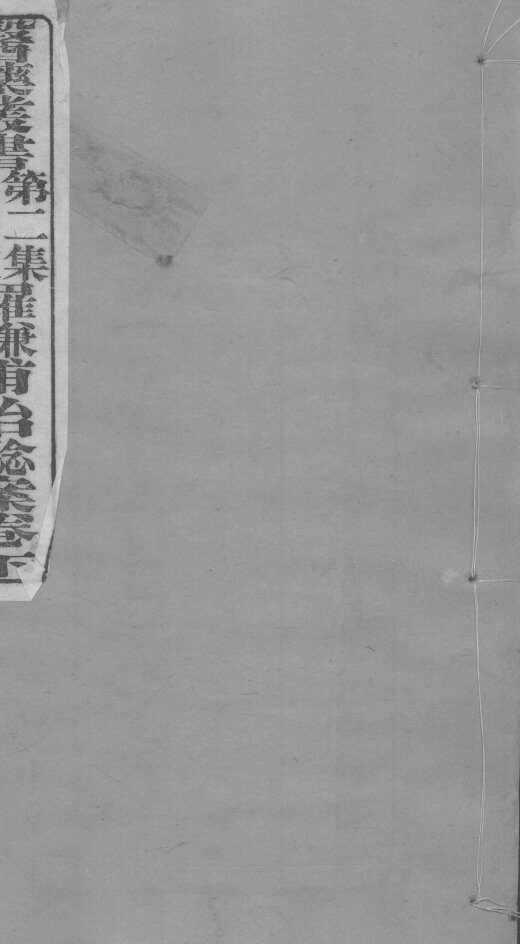 醫藥叢書第二集羅謙甫治驗案卷下